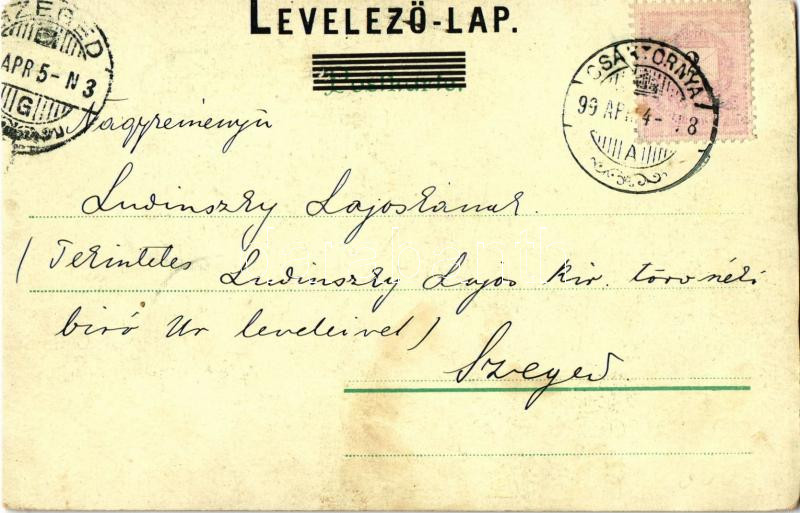 LEVELEZŐ-LAP.
Postkarte.
SZEGED
APR 5-N 3
G
CSÁKTORNYA
99 APR 4- 8
A
Nagyreményü
Ludinszky Lajoskának.
(Tekintetes Ludinszky Lajos kir. törvnéki
biró Ur leveleivel)
Szeged.